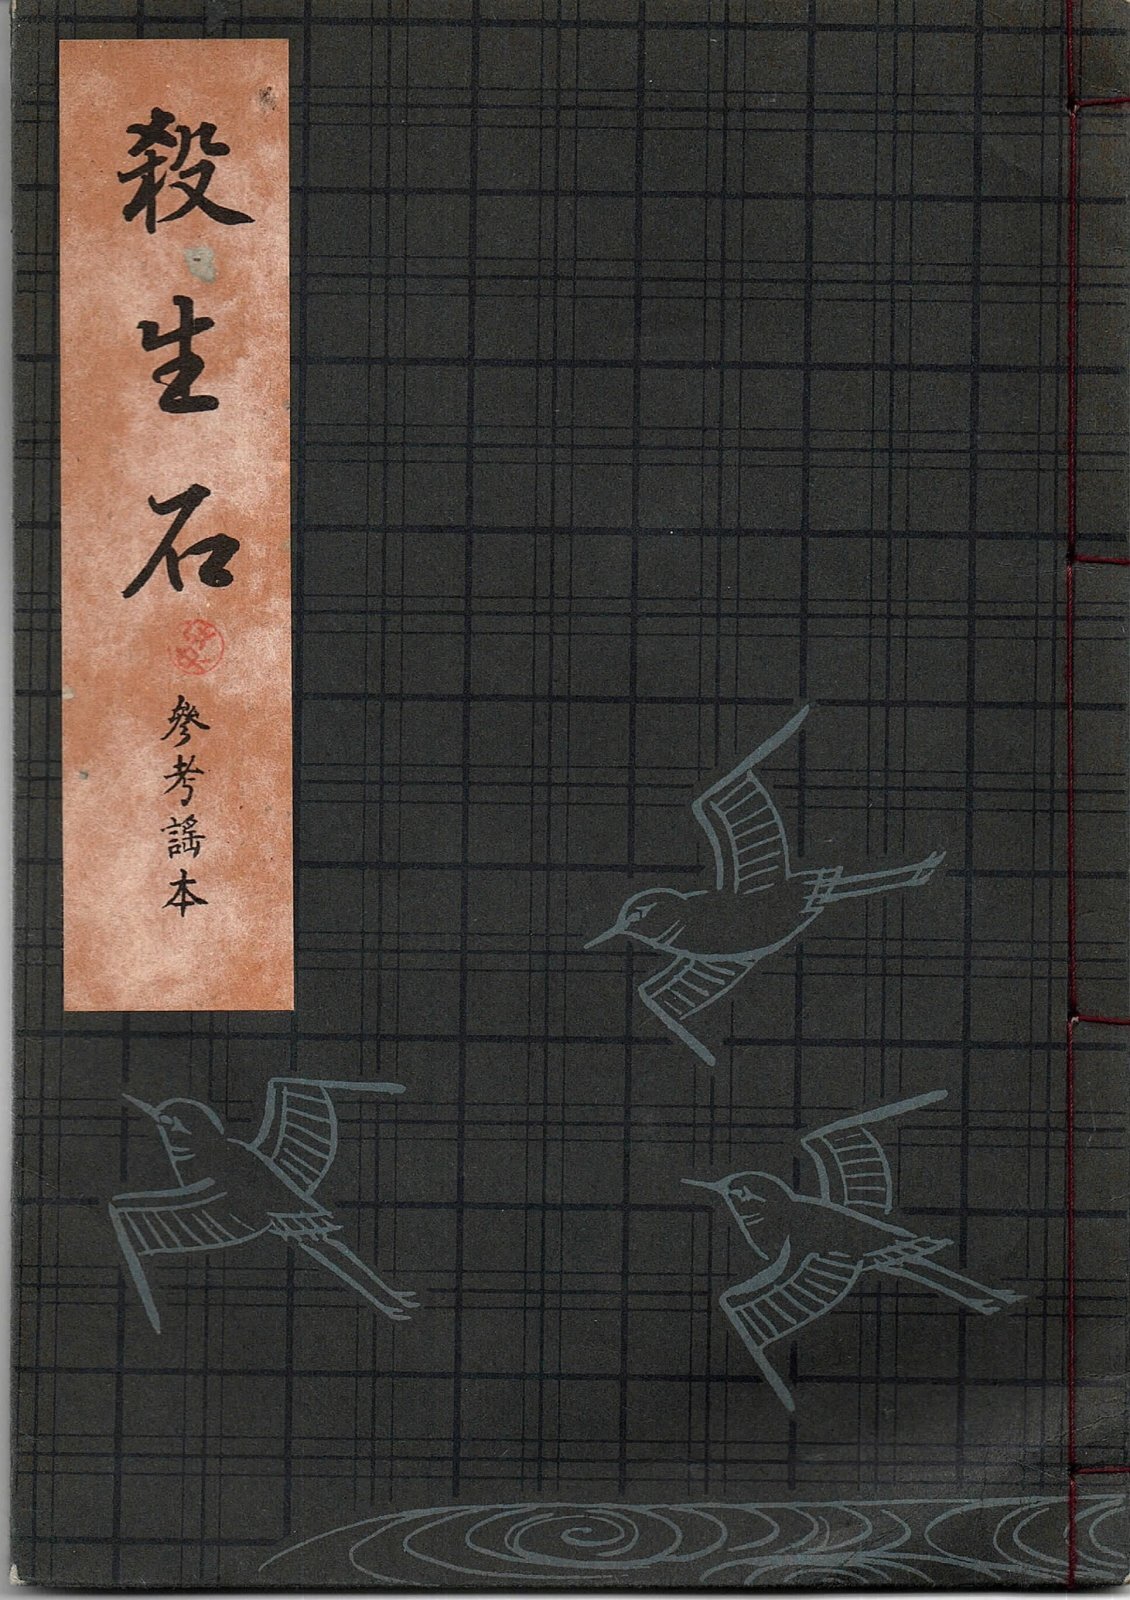 殺生石
參考謠本